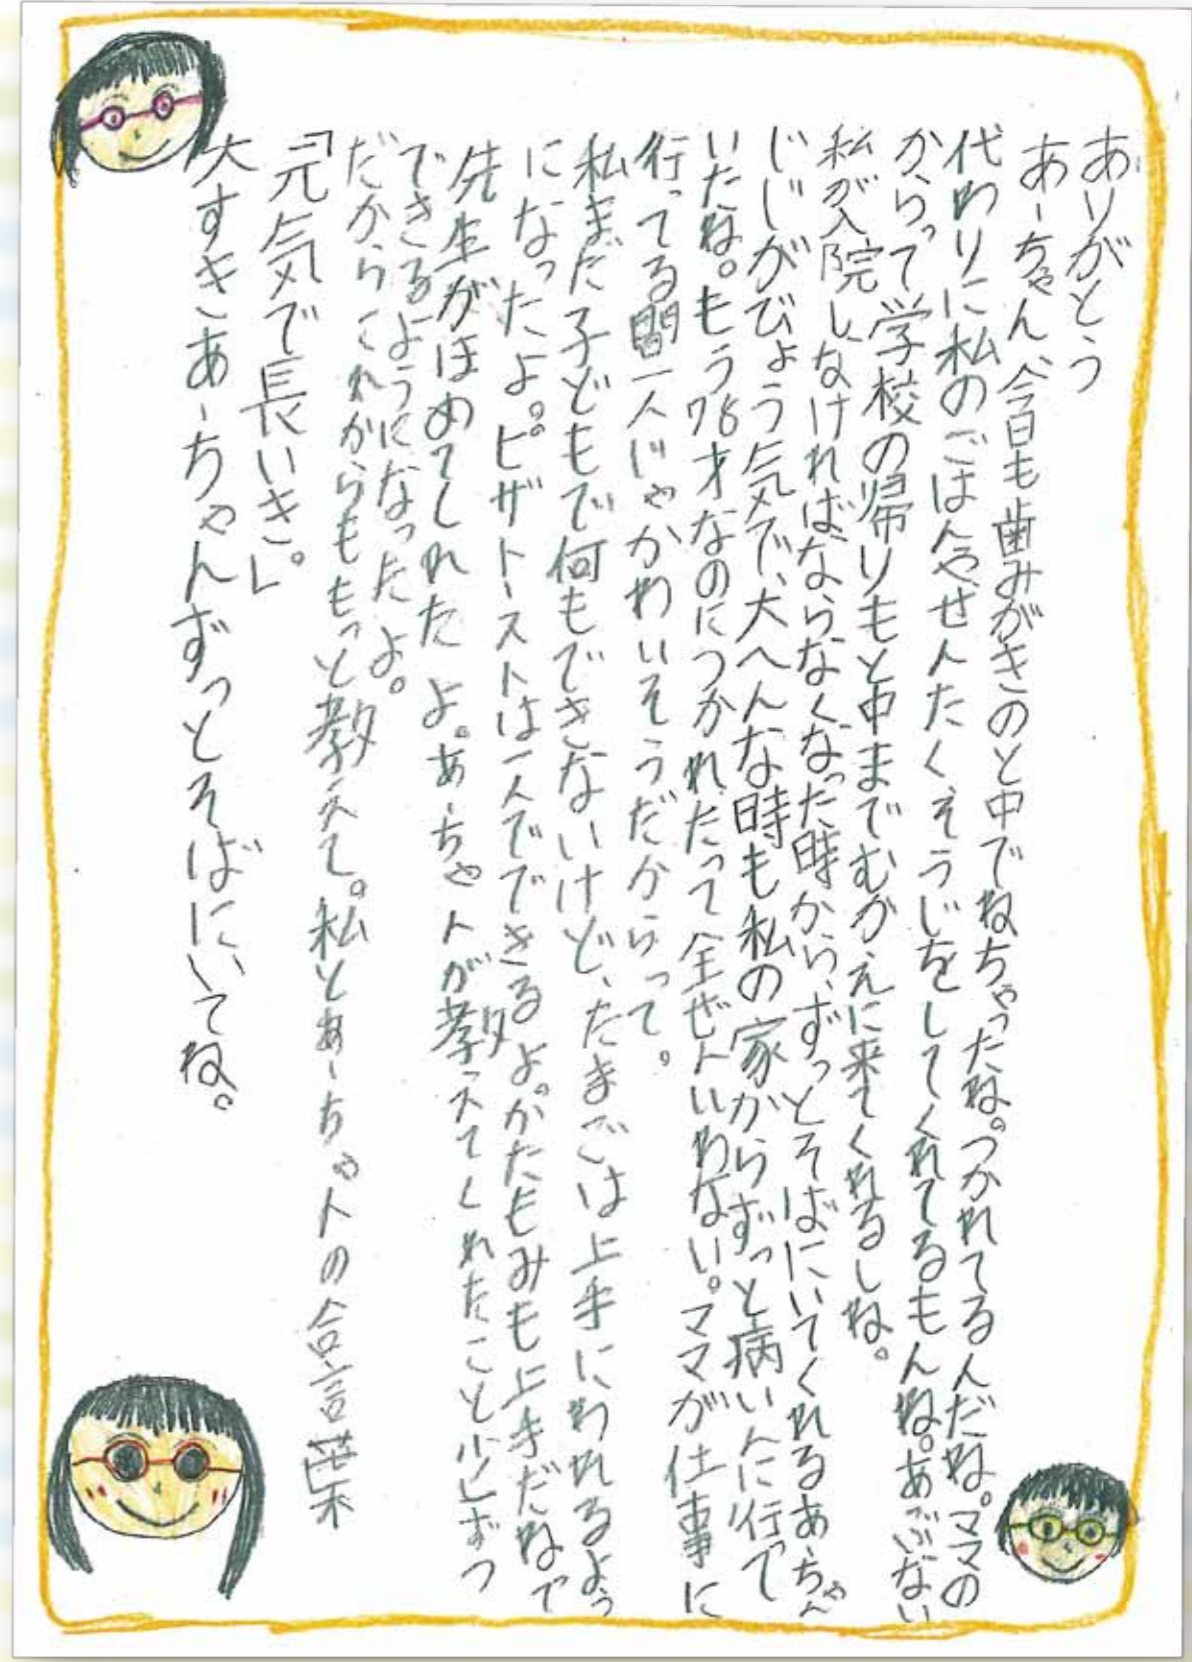 ありがとう
あーちゃん、今日も歯みがきのと中でねちゃったね。つかれてるんだね。ママの
代わりに私のごはんやせんたくそうじをしてくれてるもんね。あぶない
からって学校の帰りもと中までむかえに来てくれるしね。
私が入院しなければならなくなった時から、ずっとそばにいてくれるあーちゃん
じじがびょう気で、大へんな時も私の家からずっと病いんに行って
いたね。もう76才なのにつかれたって全ぜんいわない。ママが仕事に
行ってる間一人じゃかわいそうだからって。
私まだ子どもで何もできないけど、たまごは上手にわれるよう
になったよ。ピザトーストは一人でできるよ。かたもみも上手だねって
先生がほめてくれたよ。あーちゃんが教えてくれたこと少しずつ
できるようになったよ。
だからこれからももっと教えて。私とあーちゃんの合言葉
「元気で長いき。」
大すきあーちゃんずっとそばにいてね。